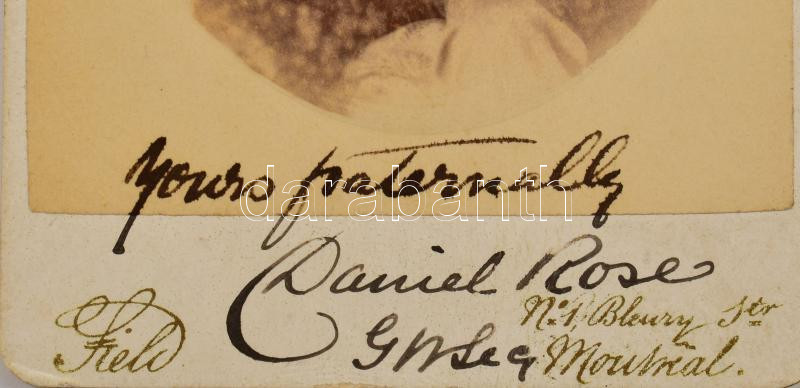 Yours paternally
darabanth
Daniel Rose
No. 1, Bleury Str
Field
Montreal.